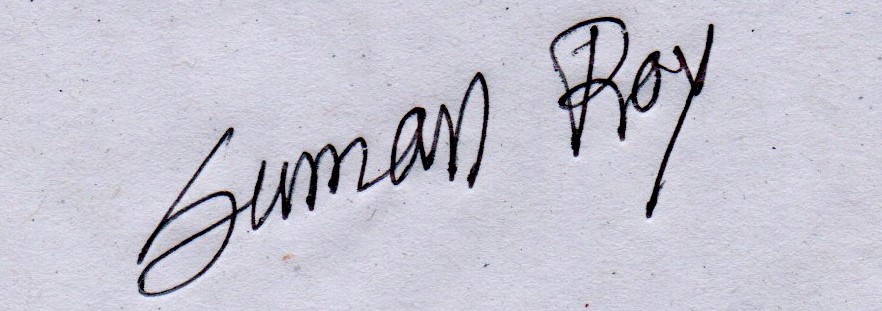 Suman Roy